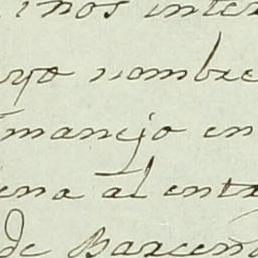 inos inter
uyo nombre
manejo en
ena al entr
de Barcena